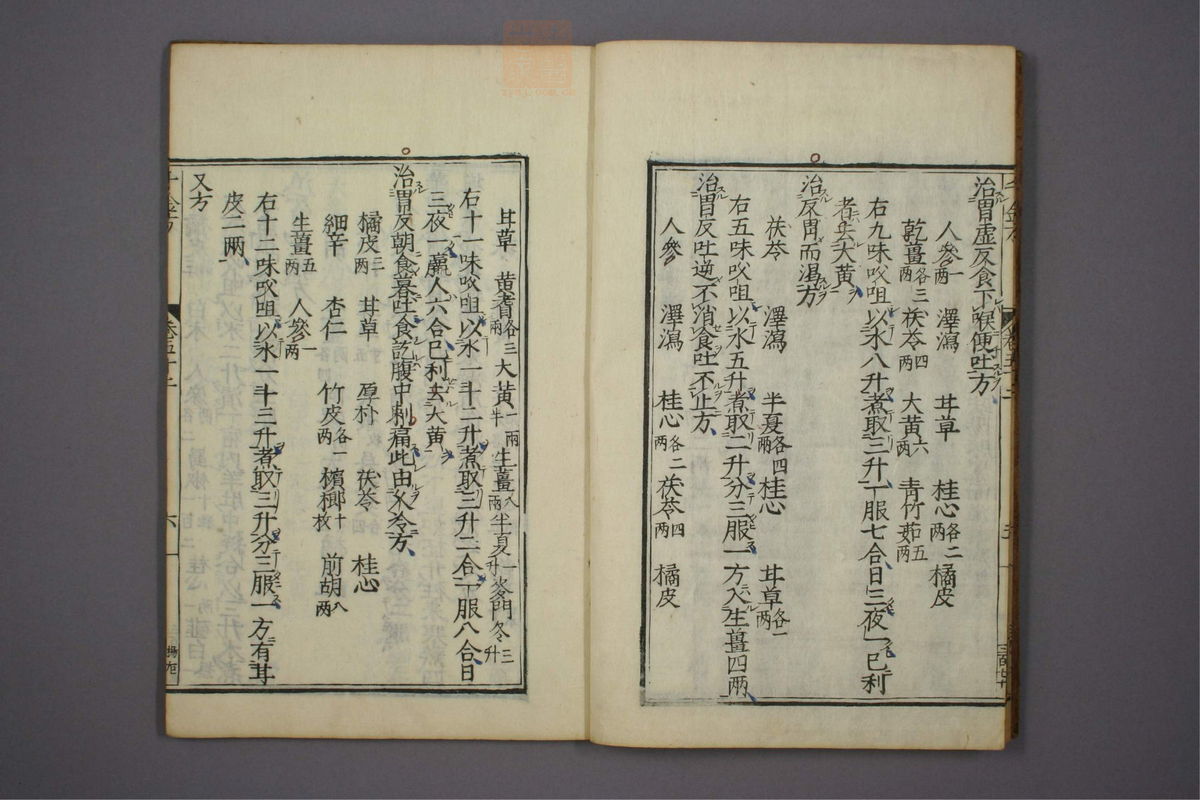 治胃虚反食下喉便吐方
人參一兩 澤瀉 甘草 桂心各二兩 橘皮
乾薑各三兩 茯苓四兩 大黄六兩 青竹茹五兩
右九味㕮咀以水八升煮取三升一服七合日三夜一已利
者去大黄
治反胃而渴方
茯苓 澤瀉 半夏各四兩 桂心 甘草各一兩
右五味㕮咀以水五升煮取二升分三服一方入生薑四兩
治胃反吐逆不消食吐不止方
人參 澤瀉 桂心各二兩 茯苓四兩 橘皮
甘草 黄耆各三兩 大黄一兩半 生薑八兩 半夏一升 麥門冬三升
右十一味㕮咀以水一斗二升煮取三升二合一服八合日
三夜一羸人六合已利去大黄
治胃反朝食暮吐食訖腹中刺痛此由久冷方
橘皮三兩 甘草 厚朴 茯苓 桂心
細辛 杏仁 竹皮各一兩 檳榔十枚 前胡八兩
生薑五兩 人參一兩
右十二味㕮咀以水一斗三升煮取三升分三服一方有甘
皮二兩
又方
千金方 卷五十二 六